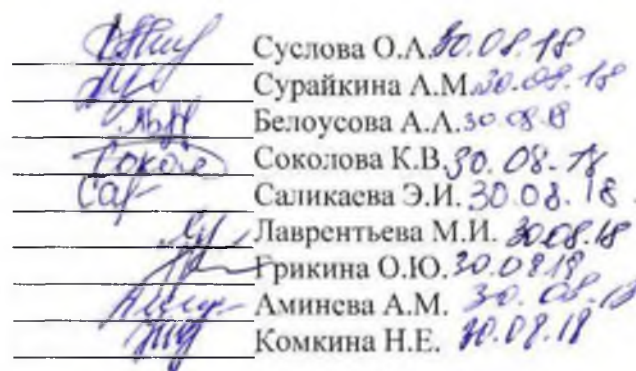 Суслова О.А. 30.08.18
Сурайкина А.М. 30.08.18
Белоусова А.А. 30.08.18
Соколова К.В. 30.08.18
Саликаева Э.И. 30.08.18.
Лаврентьева М.И. 30.08.18
Грикина О.Ю. 30.08.18
Аминева А.М. 30.08.18
Комкина Н.Е. 30.08.18